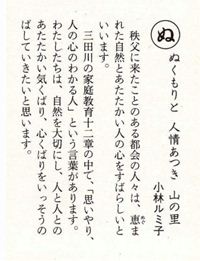 ぬ
ぬくもりと　人情あつき　山の里
小林ルミ子
秩父に来たことのある都会の人々は、恵ま
めぐ
れた自然とあたたかい人の心をすばらしいと
いいます。
三田川の家庭教育十二章の中で、「思いやり、
人の心のわかる人」という言葉があります。
わたしたちは、自然を大切にし、人と人との
あたたかい気くばり、心くばりをいっそうの
ばしていきたいと思います。